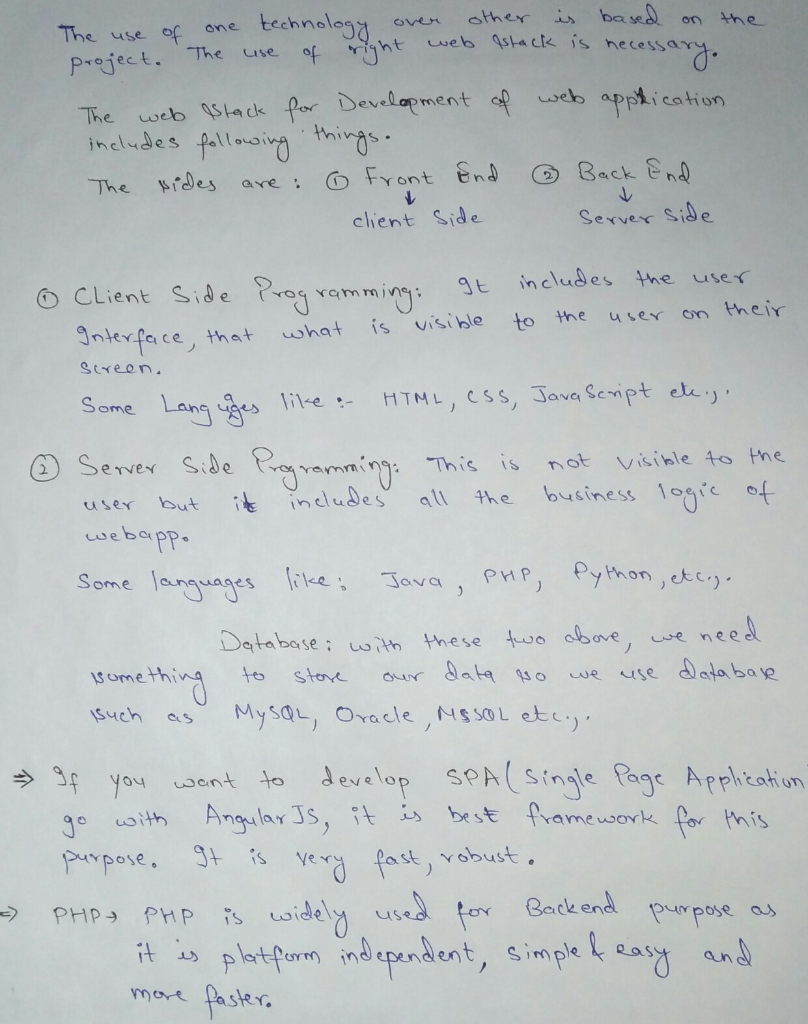 The use of one technology over other is based on the
project. The use of right web stack is necessary.
The web stack for Development of web application
includes following things.
The sides are : ① Front End ② Back End
↓ ↓
client Side Server Side
① CLient Side Programming: It includes the user
Interface, that what is visible to the user on their
screen.
Some Languges like :- HTML, CSS, JavaScript etc.,.
② Server Side Programming: This is not visible to the
user but it includes all the business logic of
webapp.
Some languages like: Java, PHP, Python, etc.,.
Database: with these two above, we need
something to store our data so we use database
such as MySQL, Oracle, MSSQL etc.,.
⇒ If you want to develop SPA (Single Page Application
go with Angular JS, it is best framework for this
purpose. It is very fast, robust.
⇒ PHP → PHP is widely used for Backend purpose as
it is platform independent, simple & easy and
more faster.